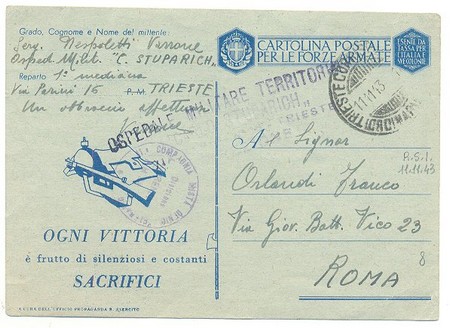 Grado, Cognome e Nome del mittente:
Serg. Nespoletti Varrone
Osped. Milit. "C. STUPARICH"
Reparto 1ª medicina
Via Parini 16 P.M. TRIESTE
Un abbraccio affettuoso
CARTOLINA POSTALE
PER LE FORZE ARMATE
ESENTE DA
TASSA PER
L'ITALIA
E COLONIE
OSPEDALE MILITARE TERRITORIALE
"STUPARICH"
TRIESTE
COMPAGNIA
TRIESTE
11.11.43
Al Signor
R.S.I.
11.11.43
Orlandi Franco
Via Giov. Batt. Vico 23
8
ROMA
OGNI VITTORIA
è frutto di silenziosi e costanti
SACRIFICI
A CURA DELL'UFFICIO PROPAGANDA R. ESERCITO